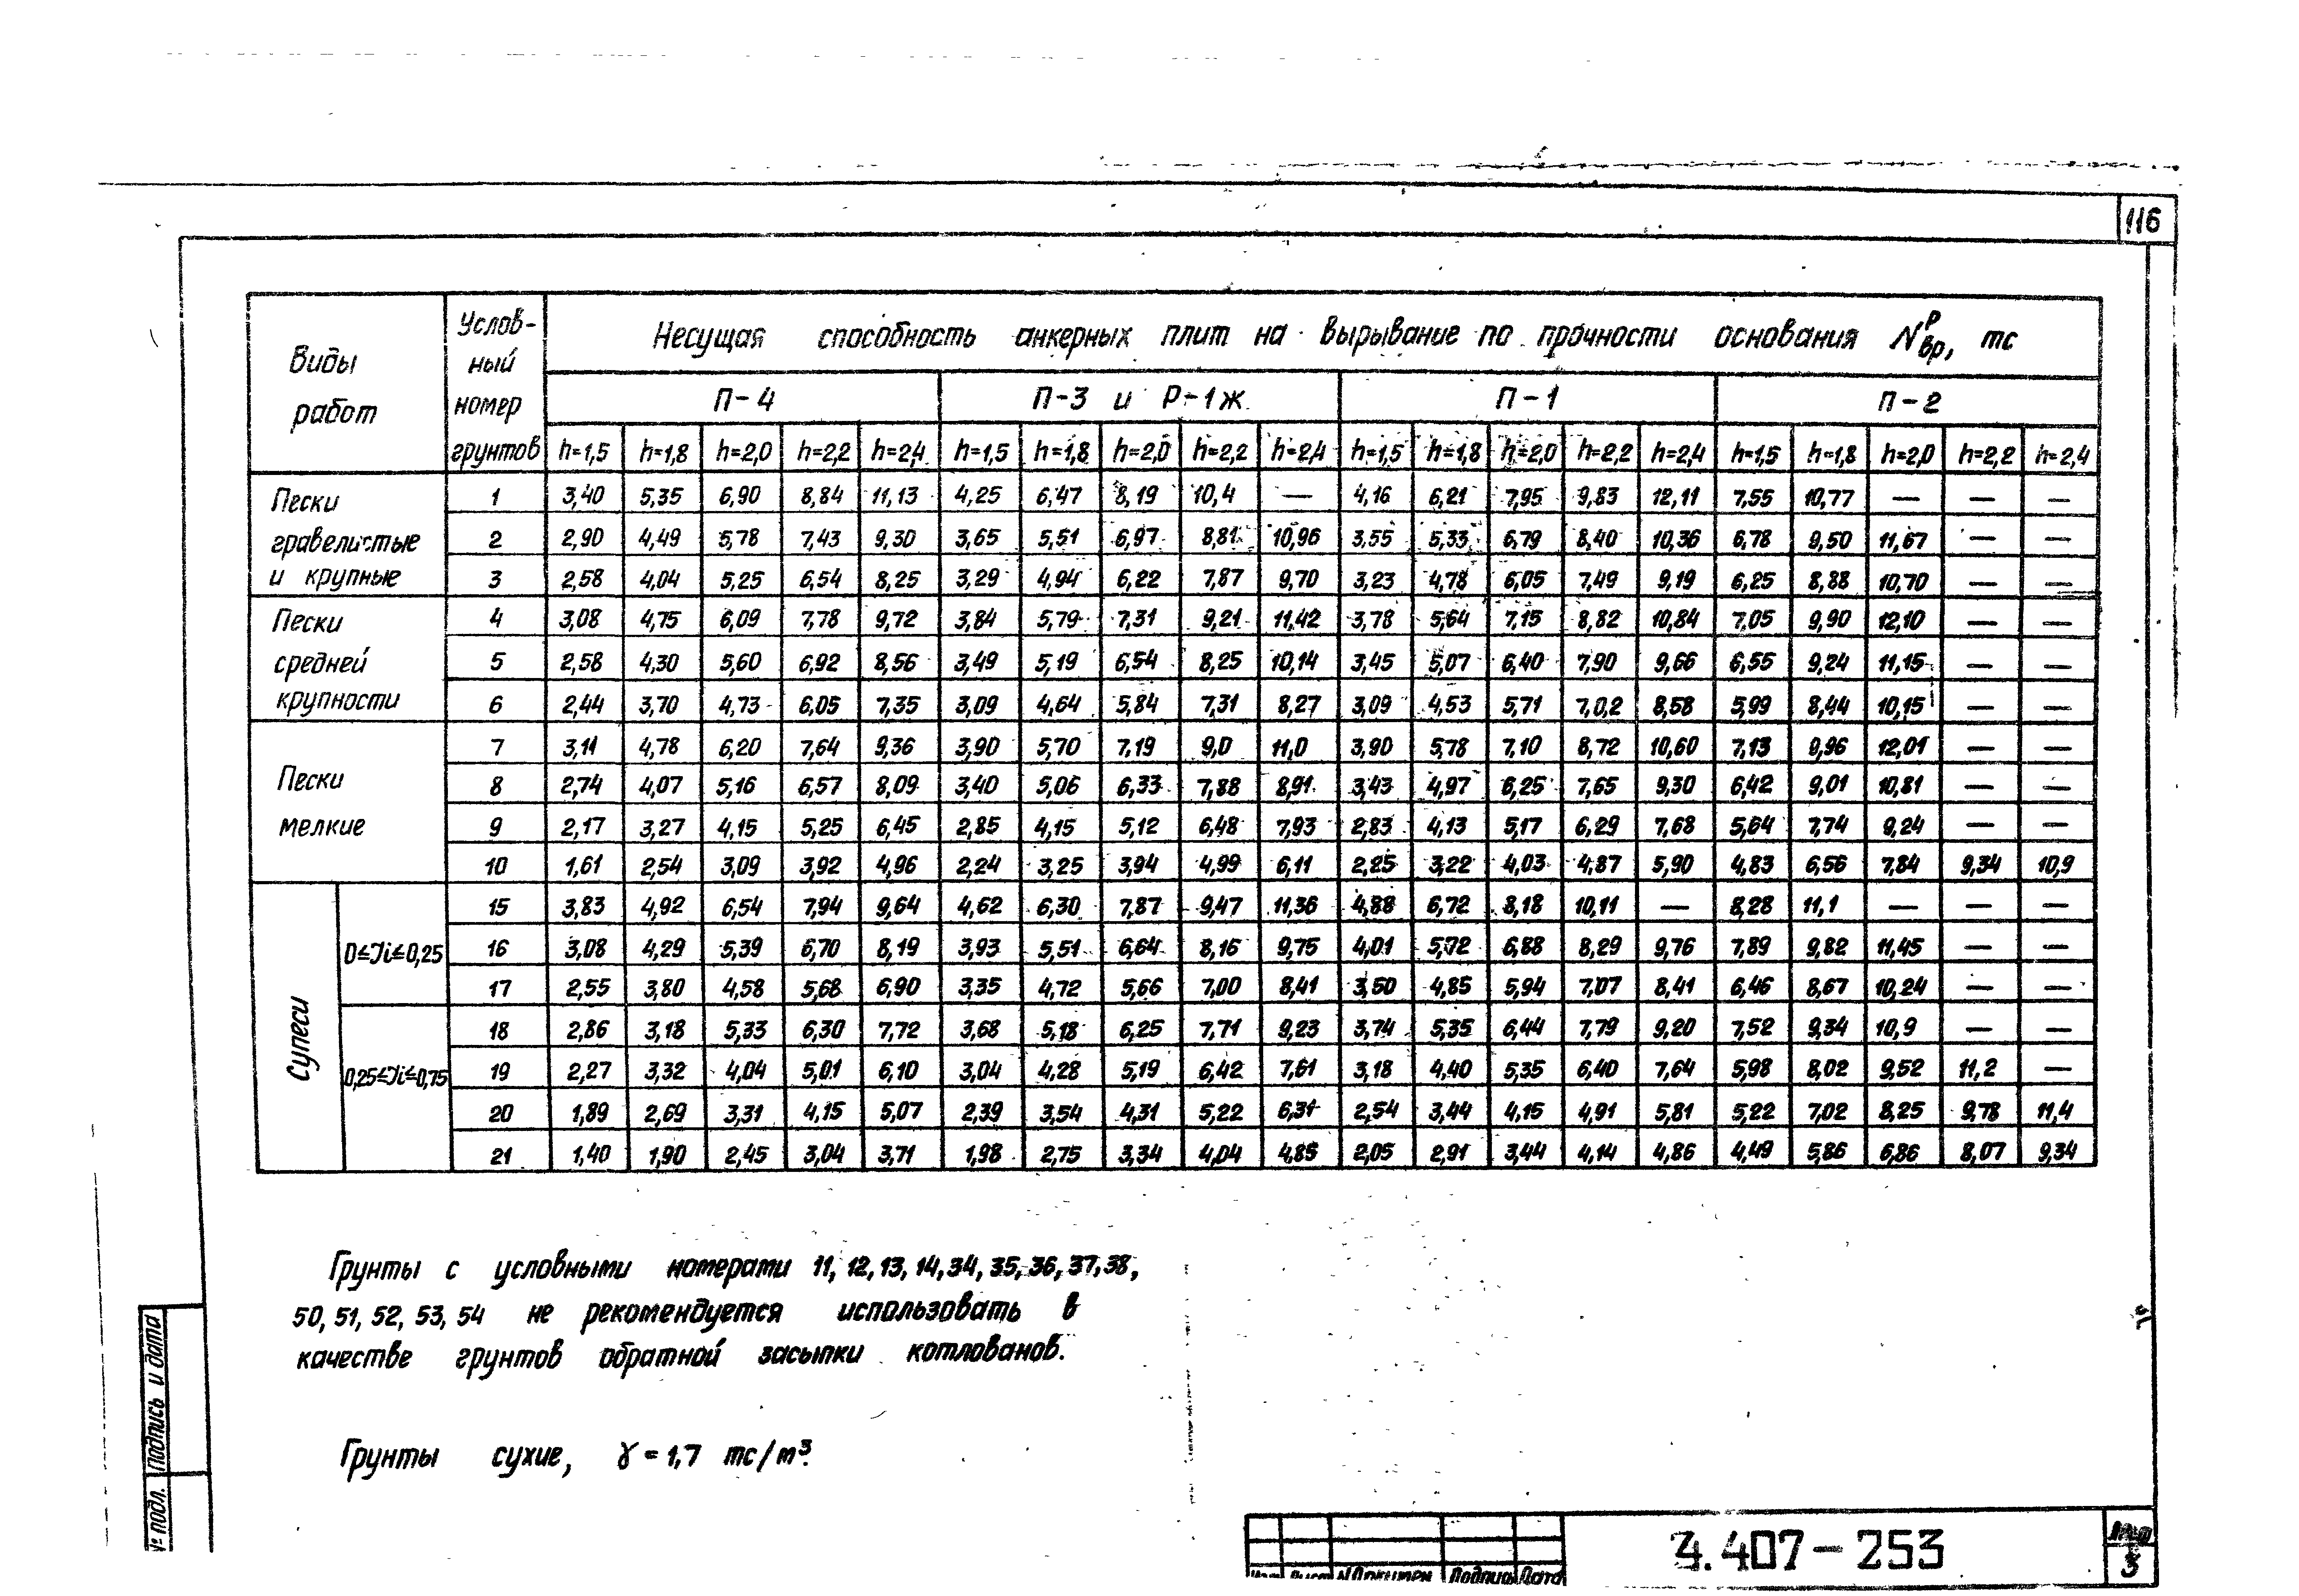 116
Виды работ
Услов-
ный
номер
грунтов
Несущая способность анкерных плит на вырывание по прочности основания N^р_вр, тс
П-4 П-3 и Р-1ж П-1 П-2
h=1,5 h=1,8 h=2,0 h=2,2 h=2,4 h=1,5 h=1,8 h=2,0 h=2,2 h=2,4 h=1,5 h=1,8 h=2,0 h=2,2 h=2,4 h=1,5 h=1,8 h=2,0 h=2,2 h=2,4
Пески
гравелистые
и крупные
1 3,40 5,35 6,90 8,84 11,13 4,25 6,47 8,19 10,4 — 4,16 6,21 7,95 9,83 12,11 7,55 10,77 — — —
2 2,90 4,49 5,78 7,43 9,30 3,65 5,51 6,97 8,81 10,96 3,55 5,33 6,79 8,40 10,36 6,78 9,50 11,67 — —
3 2,58 4,04 5,25 6,54 8,25 3,29 4,94 6,22 7,87 9,70 3,23 4,78 6,05 7,49 9,19 6,25 8,88 10,70 — —
Пески
средней
крупности
4 3,08 4,75 6,09 7,78 9,72 3,84 5,79 7,31 9,21 11,42 3,78 5,64 7,15 8,82 10,84 7,05 9,90 12,10 — —
5 2,58 4,30 5,60 6,92 8,56 3,49 5,19 6,54 8,25 10,14 3,45 5,07 6,40 7,90 9,66 6,55 9,24 11,15 — —
6 2,44 3,70 4,73 6,05 7,35 3,09 4,64 5,84 7,31 8,27 3,09 4,53 5,71 7,0,2 8,58 5,99 8,44 10,15 — —
Пески
мелкие
7 3,11 4,78 6,20 7,64 9,36 3,90 5,70 7,19 9,0 11,0 3,90 5,78 7,10 8,72 10,60 7,13 9,96 12,01 — —
8 2,74 4,07 5,16 6,57 8,09 3,40 5,06 6,33 7,88 8,91 3,43 4,97 6,25 7,65 9,30 6,42 9,01 10,81 — —
9 2,17 3,27 4,15 5,25 6,45 2,85 4,15 5,12 6,48 7,93 2,83 4,13 5,17 6,29 7,68 5,64 7,74 9,24 — —
10 1,61 2,54 3,09 3,92 4,96 2,24 3,25 3,94 4,99 6,11 2,25 3,22 4,03 4,87 5,90 4,83 6,56 7,84 9,34 10,9
Супеси
0≤Ji≤0,25
15 3,83 4,92 6,54 7,94 9,64 4,62 6,30 7,87 9,47 11,36 4,88 6,72 8,18 10,11 — 8,28 11,1 — — —
16 3,08 4,29 5,39 6,70 8,19 3,93 5,51 6,64 8,16 9,75 4,01 5,72 6,88 8,29 9,76 7,89 9,82 11,45 — —
17 2,55 3,80 4,58 5,68 6,90 3,35 4,72 5,66 7,00 8,41 3,50 4,85 5,94 7,07 8,41 6,46 8,67 10,24 — —
0,25≤Ji≤0,75
18 2,86 3,18 5,33 6,30 7,72 3,68 5,18 6,25 7,71 9,23 3,74 5,35 6,44 7,79 9,20 7,52 9,34 10,9 — —
19 2,27 3,32 4,04 5,01 6,10 3,04 4,28 5,19 6,42 7,61 3,18 4,40 5,35 6,40 7,64 5,98 8,02 9,52 11,2 —
20 1,89 2,69 3,31 4,15 5,07 2,39 3,54 4,31 5,22 6,31 2,54 3,44 4,15 4,91 5,81 5,22 7,02 8,25 9,78 11,4
21 1,40 1,90 2,45 3,04 3,71 1,98 2,75 3,34 4,04 4,85 2,05 2,91 3,44 4,14 4,86 4,49 5,86 6,86 8,07 9,34
Грунты с условными номерами 11, 12, 13, 14, 34, 35, 36, 37, 38,
50, 51, 52, 53, 54 не рекомендуется использовать в
качестве грунтов обратной засыпки котлованов.
Грунты сухие, γ = 1,7 тс/м³.
№ подл. Подпись и дата
Лист № докумен Подпись Дата
3.407-253
Лист
3